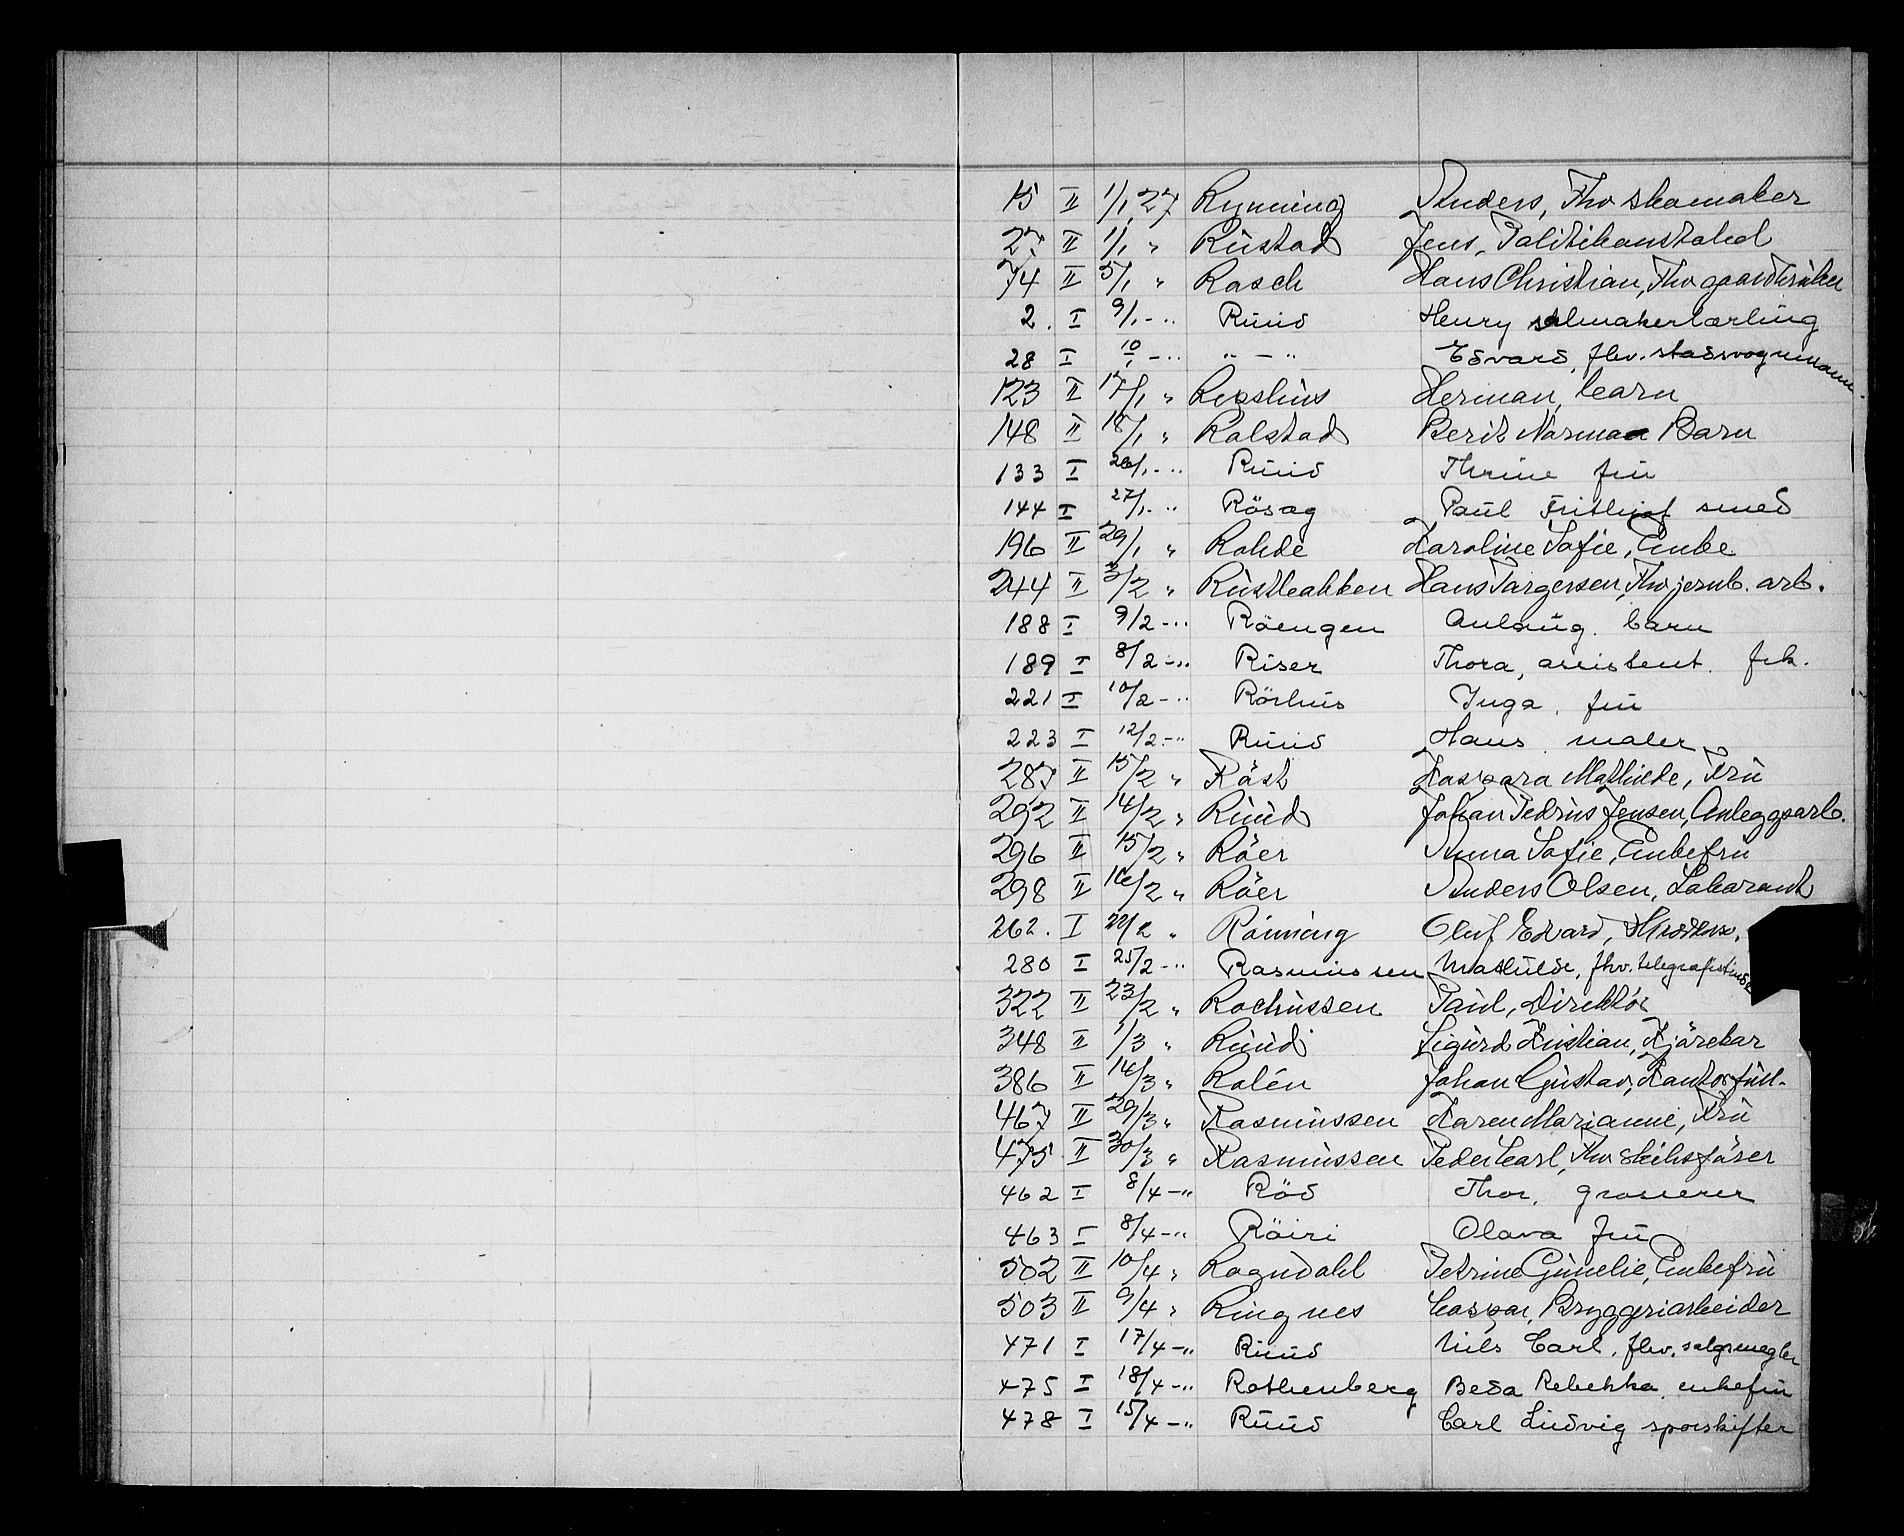 15 II 1/1 27 Rynning Anders, Fhv skomaker
27 II 1/1 " Rustad Jens, Politikonstabel
74 II 5/1 " Rasch Hans Christian, Fhv gaardbruker
2. I 9/1 - " Ruud Henry salmakerlærling
28 I 10/1 - " " - " Edvard, fhv. stadsvognmann
123 II 17/1 " Herman, barn
148 II 18/1 " Rolstad Berit Norma Barn
133 I 26/1 - " Ruud Thrine fru
144 I 27/1 - " Rösag Paul Frithjof smed
196 II 29/1 " Rohde Karoline Sofie, Enke
244 II 3/2 " Rustbakken Hans Torgersen, Fhv jernb. arb.
188 I 9/2 - " Röengen Anlaug. barn
189 I 8/2 - " Riser Thora, assistent. frk.
221 I 10/2 - " Rörhus Inga. fru
223 I 12/2 - " Ruud Hans. maler
287 II 15/2 " Röst Kaspara Mathilde, Fru
292 II 14/2 " Ruud Johan Pedrus Jensen, Anleggsarb.
296 II 15/2 " Röer Anna Sofie, Enkefru
298 II 16/2 " Röer Anders Olsen, Laborant
262. I 22/2 " Rönning Oluf Edvard,
280 I 25/2 - " Rasmussen Mathilde, fhv. telegrafistinde
322 II 23/2 " Rochussen Paul, Direktör
348 II 1/3 " Ruud Sigurd Kristian, Kjörekar
386 II 14/3 " Rolén Johan Gustav, Kontorfull.
467 II 29/3 " Rasmussen Karen Marianne, Fru
475 II 30/3 " Rasmussen Peder Carl, Fhv skibsförer
462 I 8/4 - " Röd Thor, grosserer
463 I 8/4 - " Röiri Olava fru
502 II 10/4 " Rogndahl Petrine Gunelie, Enkefru
503 II 9/4 " Ringnes Caspar, Bryggeriarbeider
471 I 17/4 - " Ruud Nils Carl, fhv. salgsmegler
475 I 18/4 - " Rothenberg Beda Rebekka, enkefru
478 I 15/4 - " Ruud Carl Ludvig sporskifter